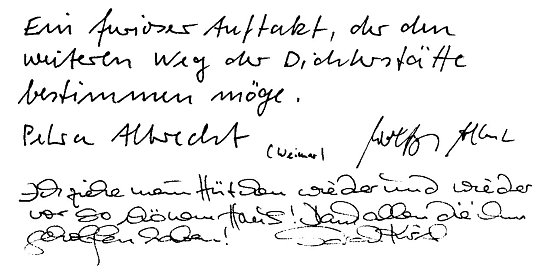 Ein furioser Auftakt, der den
weiteren Weg der Dichterstätte
bestimmen möge.
Petra Albrecht (Weimar)
Ich ziehe mein Hütchen wieder und wieder
vor so schönem Haus! Dank allen die ihm
geholfen haben!